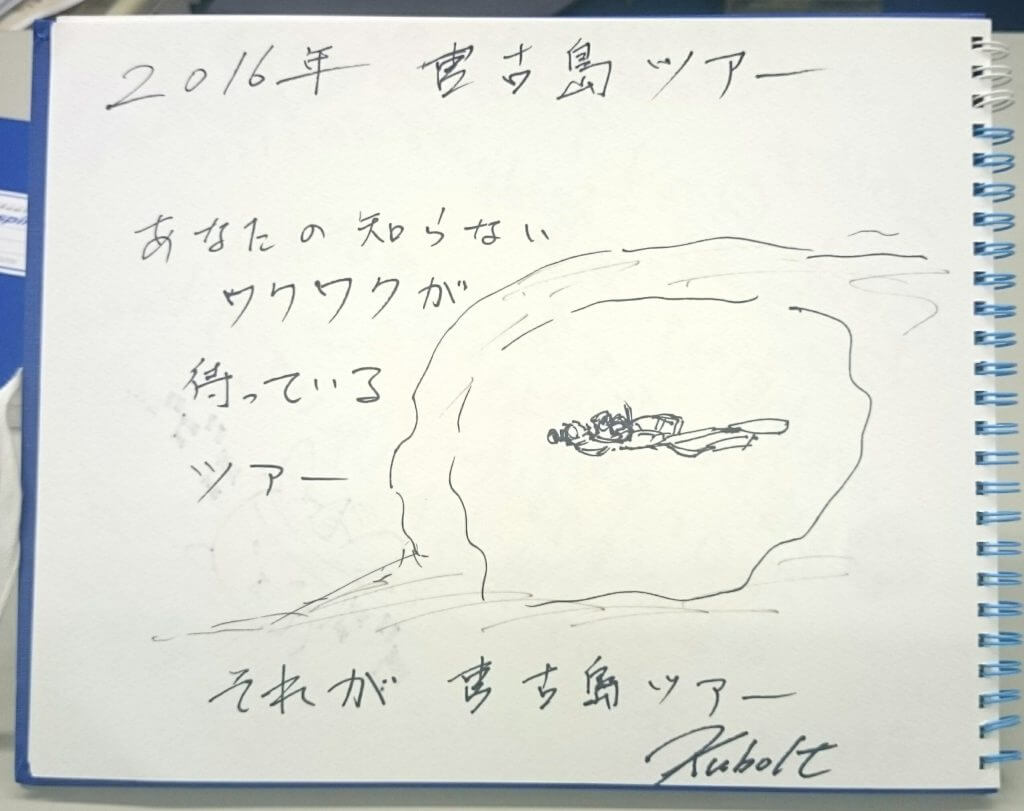 2016年 宮古島ツアー
あなたの知らない
ワクワクが
待っている
ツアー
それが 宮古島ツアー
Kubolt